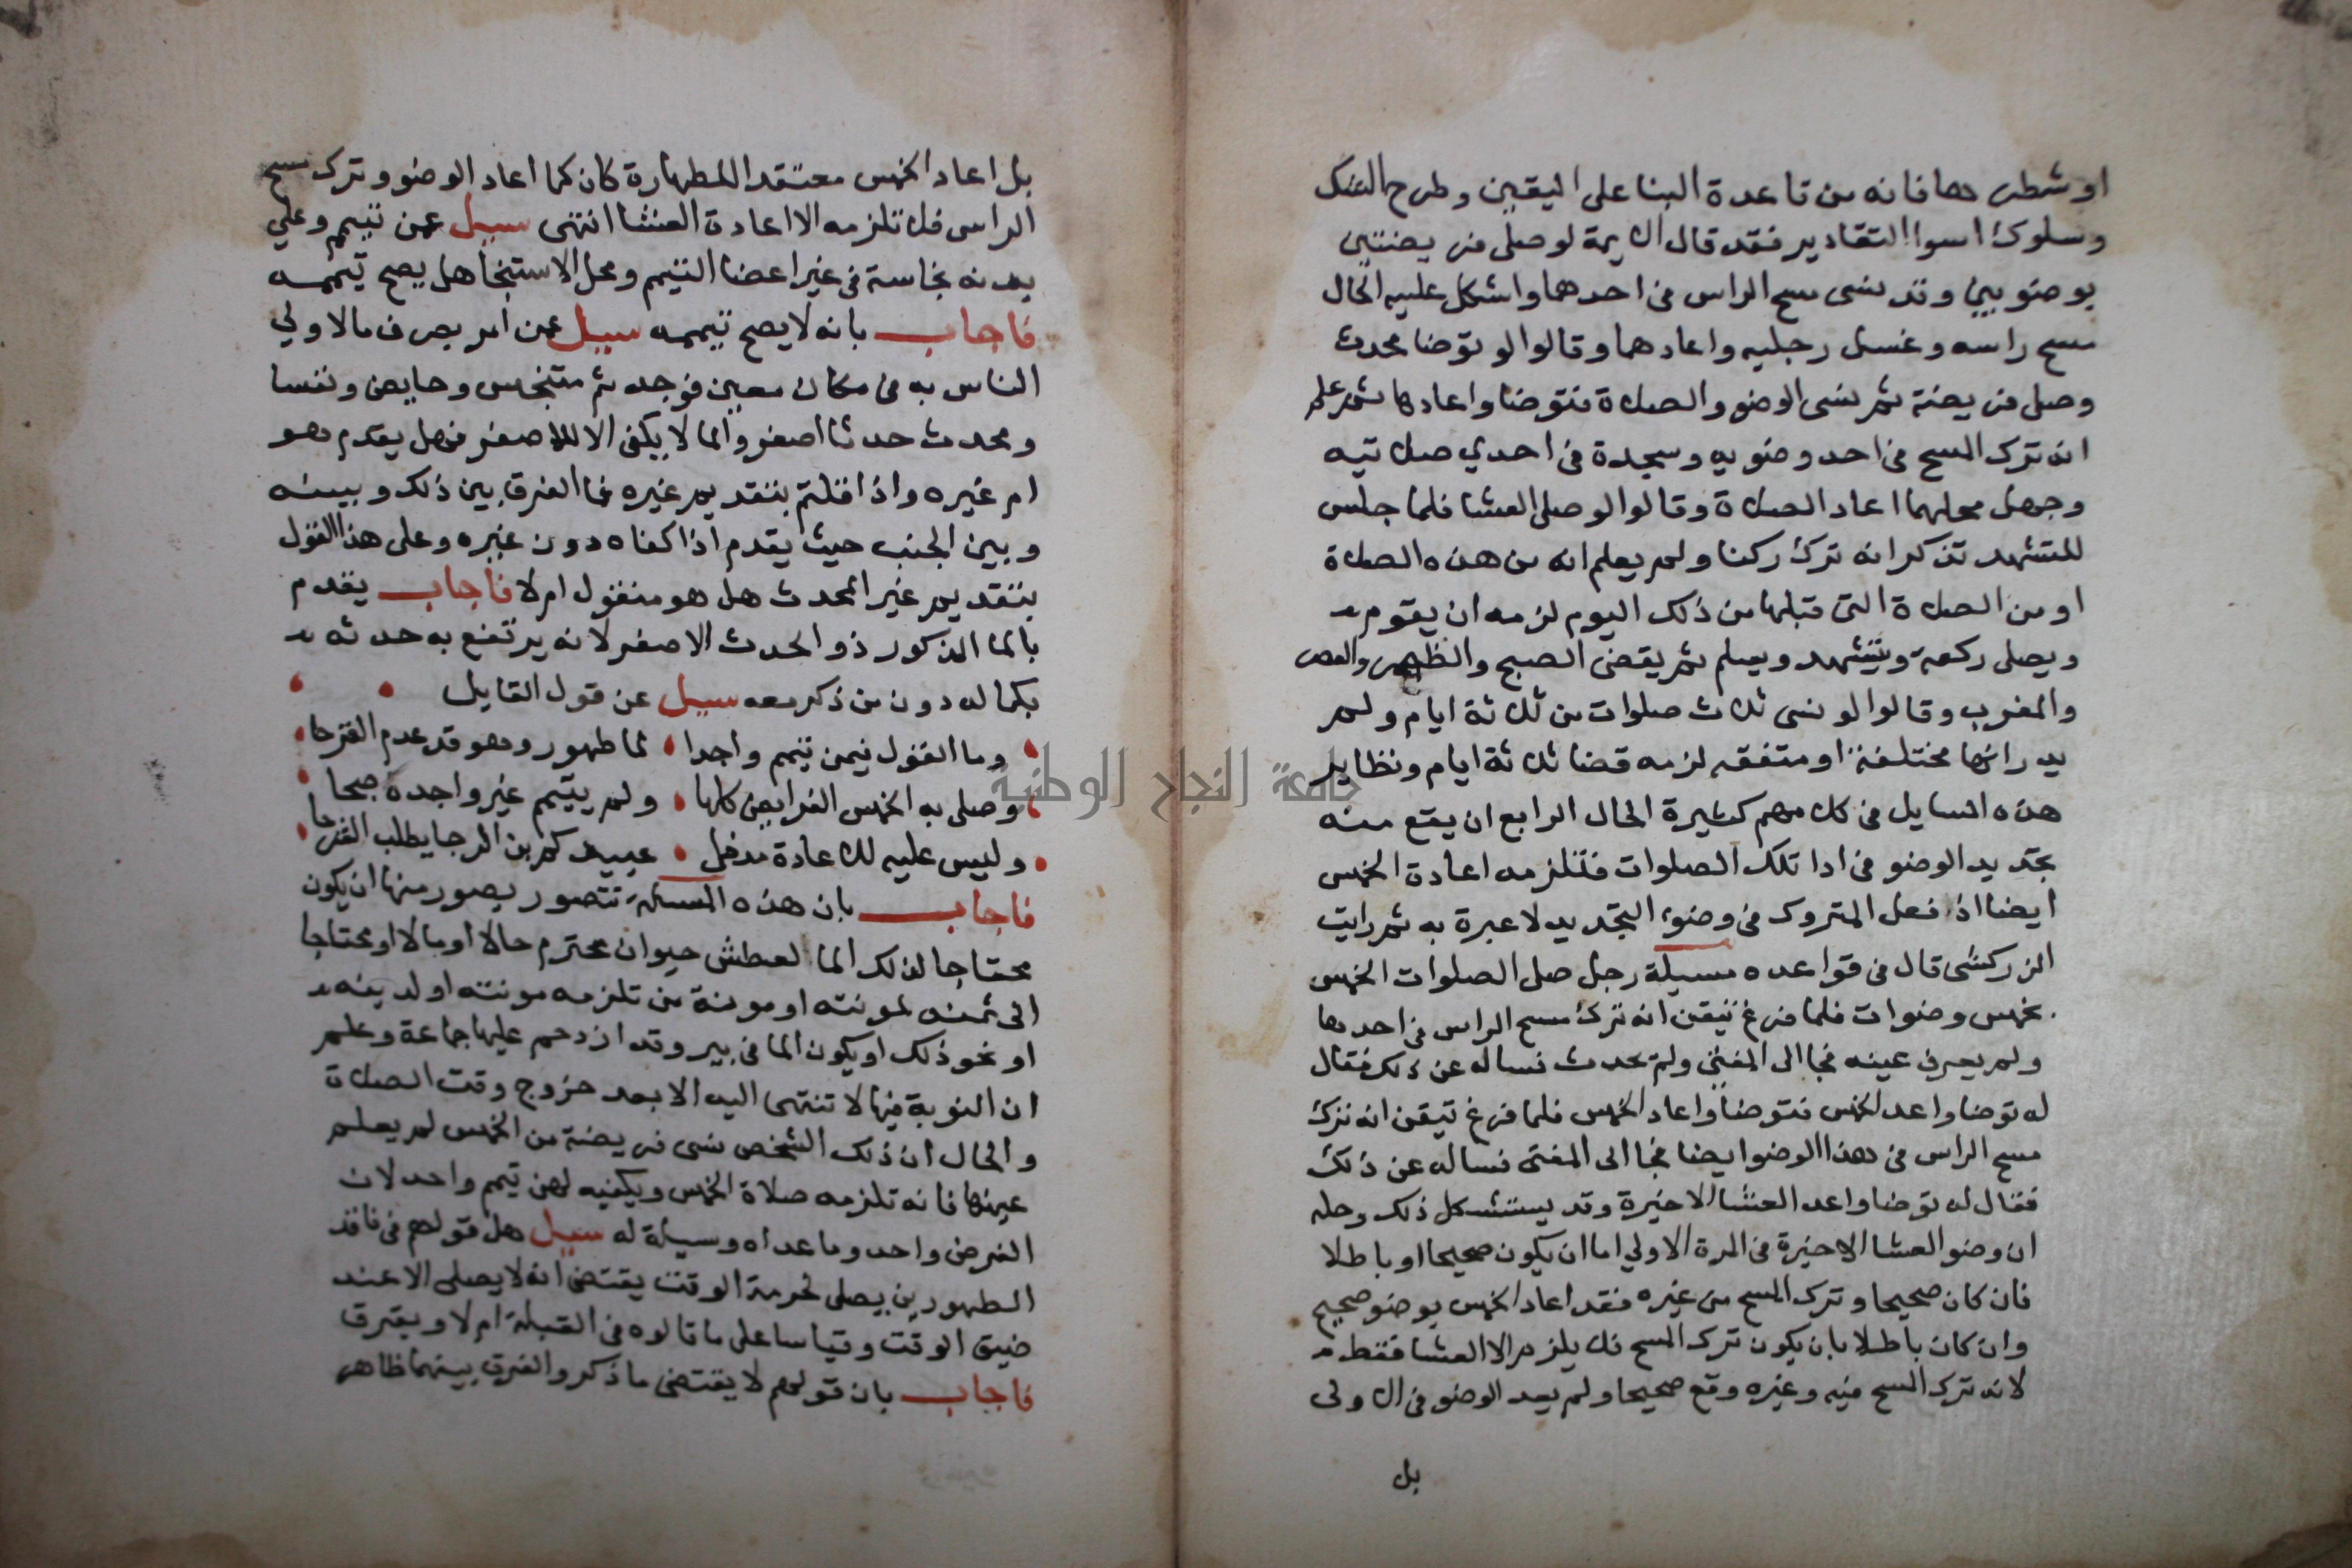 او شطرها فانه من قاعدة البنا على اليقين وطرح الشك
وسلوك اسوا التقادير فقد قال الايمة لو صلى فريضتين
بوضويين وقد نسى مسح الراس في احدهما واشكل عليه الحال
مسح راسه وغسل رجليه واعادهما وقالوا لو توضا محدث
وصلى فريضة ثم نسى الوضو والصلاة فتوضا واعادها ثم علم
انه ترك المسح في احد وضويه وسجدة في احدي صلاتيه
وجهل محلهما اعاد الصلاة وقالوا لو صلى العشا فلما جلس
للتشهد تذكر انه ترك ركنا ولم يعلم انه من هذه الصلاة
او من الصلاة التي قبلها من ذلك اليوم لزمه ان يقوم
ويصلى ركعة ويتشهد ويسلم ثم يقضى الصبح والظهر والعصر
والمغرب وقالوا لو نسى ثلاث صلوات من ثلاثة ايام ولم
يدر انها مختلفة او متفقه لزمه قضا ثلاثة ايام ونظاير
هذه المسايل في كلامهم كثيرة الحال الرابع ان يقع منه
تجديد الوضو في ادا تلك الصلوات فتلزمه اعادة الخمس
ايضا اذ فعل المتروك في وضوء التجديد لا عبرة به ثم رايت
الزركشي قال في قواعده مسيلة رجل صلى الصلوات الخمس
بخمس وضوات فلما فرغ تيقن انه ترك مسح الراس في احدها
ولم يعرف عينه فجا الى المفتى ولم يحدث فساله عن ذلك فقال
له توضا واعد الخمس فتوضا واعاد الخمس فلما فرغ تيقن انه ترك
مسح الراس في هذا الوضو ايضا فجا الى المفتى فساله عن ذلك
فقال له توضا واعد العشا الاخيرة وقد يستشكل ذلك وحله
ان وضو العشا الاخيرة في المرة الاولي اما ان يكون صحيحا او باطلا
فان كان صحيحا وترك المسح من غيره فقد اعاد الخمس بوضو صحيح
وان كان باطلا بان يكون ترك المسح فلا يلزم الا العشا فقط
لانه ترك المسح فيه وغيره وقع صحيحا ولم يعد الوضو في الاولى
بل
بل اعاد الخمس معتقدا للطهارة كان كما اعاد الوضو وترك مسح
الراس فلا تلزمه الا اعادة العشا انتهى سيل عمن تيمم وعلي
بدنه نجاسة في غير اعضا التيمم ومحل الاستنجا هل يصح تيممه
فاجاب بانه لا يصح تيممه سيل عمن امر بصرف ما لاولي
الناس به في مكان معين فوجد ثم متنجس وحايض ونفسا
ومحدث حدثا اصغر والما لا يكفى الا للاصغر فهل يقدم هو
ام غيره واذا قلتم بتقديم غيره فما الفرق بين ذلك وبينه
وبين الجنب حيث يقدم اذا كفاه دون غيره وعلى هذا القول
بتقديم غير المحدث هل هو منقول ام لا فاجاب يقدم
بالما المذكور ذو الحدث الاصغر لانه يرتفع به حدثه
بكماله دون من ذكر معه سيل عن قول القايل
وما القول فيمن تيمم واجدا لما طهور وهو قد عدم القرحا
وصلى به الخمس الفرايض كلها ولم يتيمم غير واجدة صحا
وليس عليه للاعادة مدخل عبيدكم بن الرجا يطلب الفرحا
فاجاب بان هذه المسيلة تتصور بصور منها ان يكون
محتاجا لذلك الما لعطش حيوان محترم حالا او مالا او محتاجا
الى ثمنه لمونته او مونة من تلزمه مونته او لدينه
او نحو ذلك او يكون الما في بير وقد ازدحم عليها جماعة وعلم
ان النوبة فيها لا تنتهى اليه الا بعد خروج وقت الصلاة
والحال ان ذلك الشخص نسى فريضة من الخمس لم يعلم
عينها فانه تلزمه صلاة الخمس ويكفيه لهن تيمم واحد لان
الفرض واحد وما عداه وسيلة له سيل هل قولهم في فاقد
الطهورين يصلى لحرمة الوقت يقتضى انه لا يصلى الا عند
ضيق الوقت وقياسا على ما قالوه في القبلة ام لا ويفرق
فاجاب بان قولهم لا يقتضى ما ذكر والفرق بينهما ظاهر
جامعة النجاح الوطنية